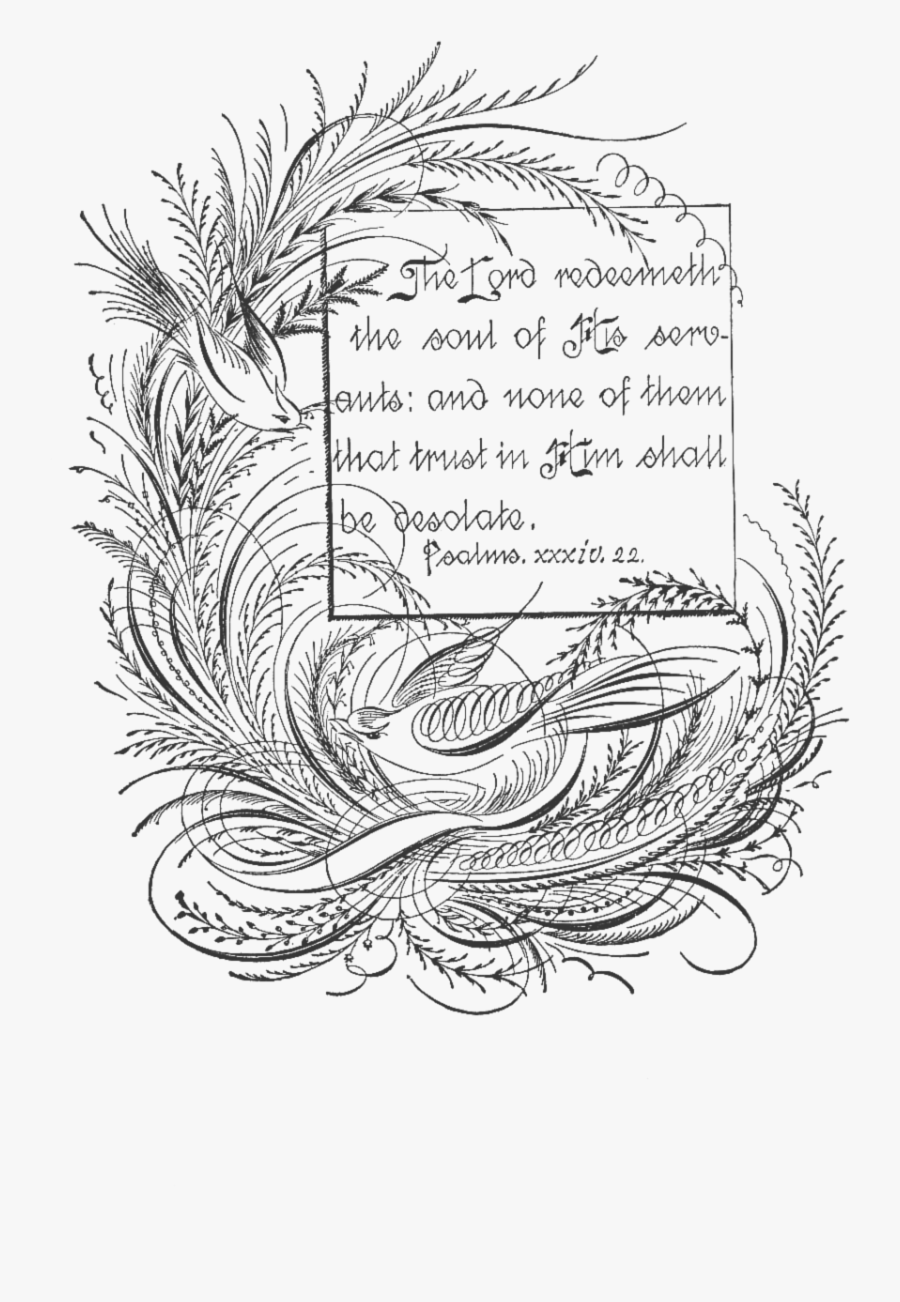 The Lord redeemeth
the soul of His serv-
ants: and none of them
that trust in Him shall
be desolate.
Psalms. xxxiv. 22.